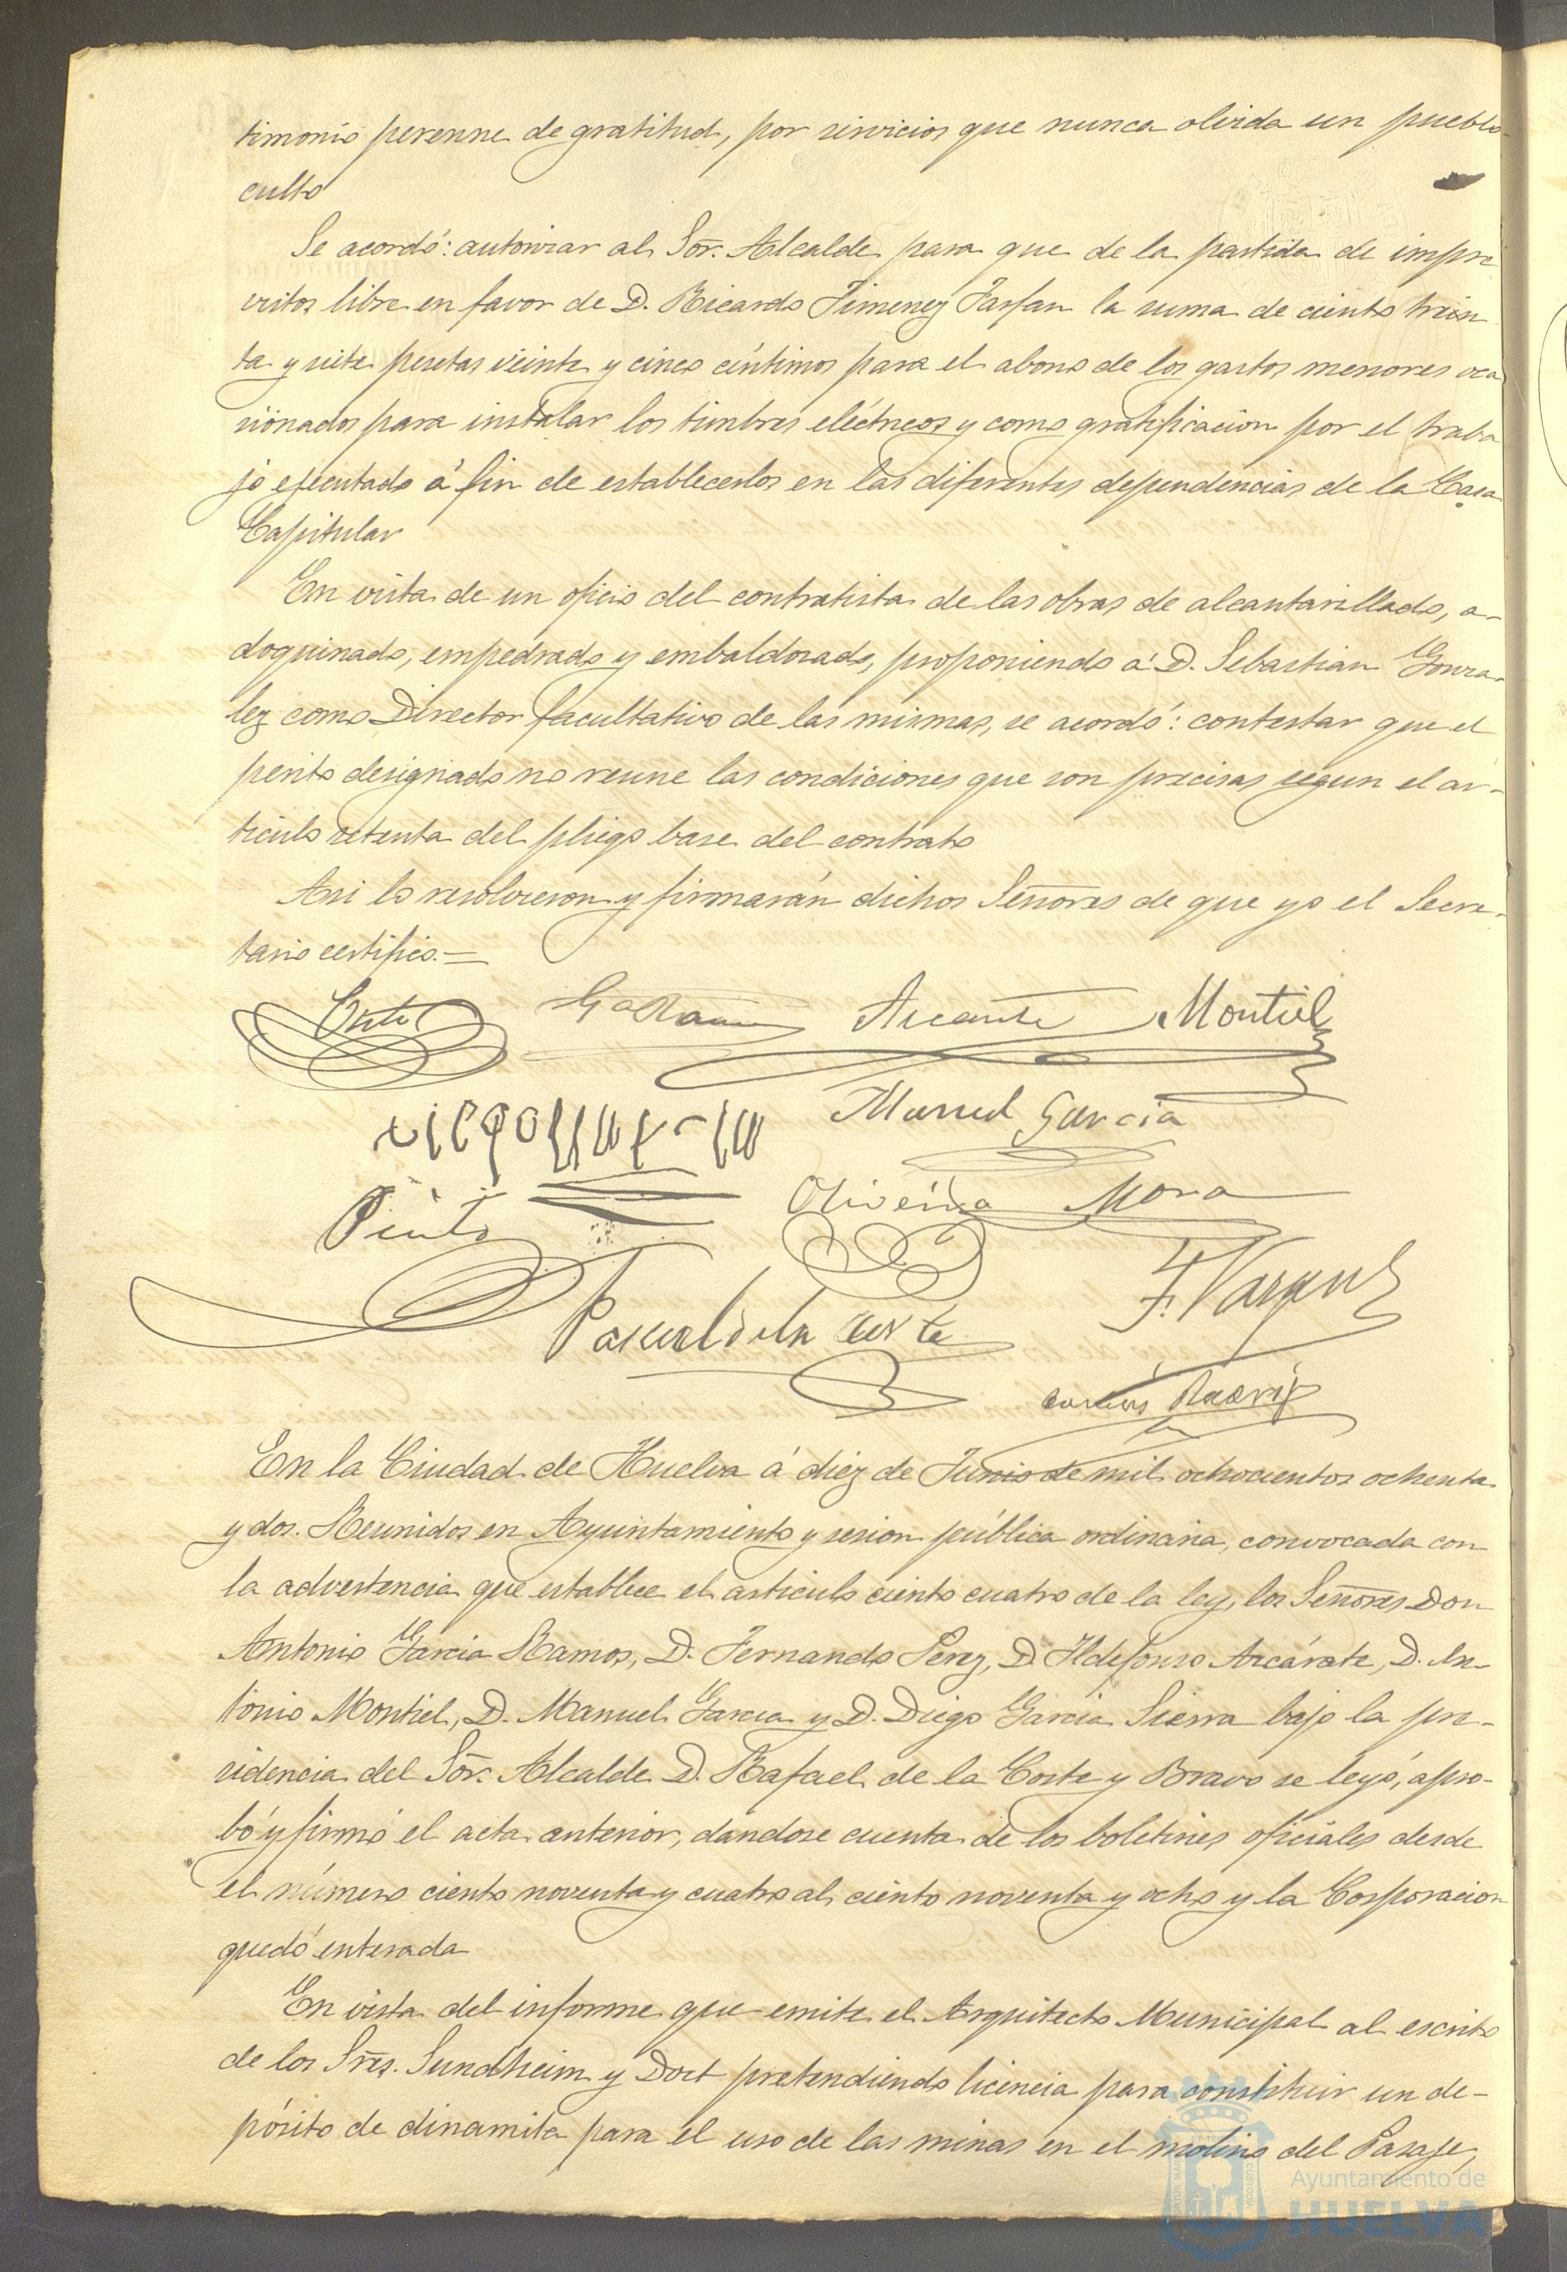 timonio perenne de gratitud, por servicios que nunca olvida un pueblo
culto
Se acordó: autorizar al Sor. Alcalde para que de la partida de impre
vistos libre en favor de D. Ricardo Jimenez Farfan la suma de ciento trein
ta y siete pesetas veinte y cinco céntimos para el abono de los gastos menores oca
sionados para instalar los timbres eléctricos y como gratificacion por el traba
jo ejecutado á fin de establecerlos en las diferentes dependencias de la Casa
Capitular
En vista de un oficio del contratista de las obras de alcantarillado, a-
doquinado, empedrado y embaldosado, proponiendo á D. Sebastian Gonza-
lez como Director facultativo de las mismas, se acordó: contestar que el
perito designado no reune las condiciones que son precisas segun el ar-
ticulo setenta del pliego base del contrato
Asi lo resolvieron y firmarán dichos Señores de que yo el Secre-
tario certifico.=
Ga Ramos Azcarate Montiel
Manuel Garcia
Pinto Oliveira Mora
F. Vazquez
Pascual de la Corte
En la Ciudad de Huelva á diez de Junio de mil ochocientos ochenta
y dos. Reunidos en Ayuntamiento y sesion pública ordinaria, convocada con
la advertencia que establece el articulo ciento cuatro de la ley, los Señores Don
Antonio Garcia Ramos, D. Fernando Perez, D. Ildefonso Azcárate, D. An-
tonio Montiel, D. Manuel Garcia y D. Diego Garcia Sierra bajo la pre-
sidencia del Sor. Alcalde D. Rafael de la Corte y Bravo se leyó, apro-
bó y firmó el acta anterior, dandose cuenta de los boletines oficiales desde
el número ciento noventa y cuatro al ciento noventa y ocho y la Corporacion
quedó enterada
En vista del informe que emite el Arquitecto Municipal al escrito
de los Sres. Sundheim y Doet pretendiendo licencia para construir un de-
pósito de dinamita para el uso de las minas en el molino del Pasage,
Ayuntamiento de
HUELVA